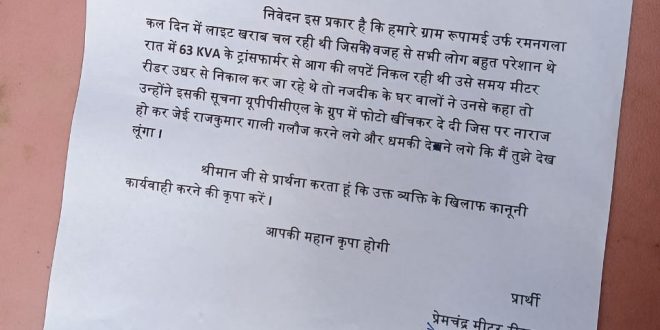 निवेदन इस प्रकार है कि हमारे ग्राम रूपामई उर्फ रमनगला
कल दिन में लाइट खराब चल रही थी जिसकी वजह से सभी लोग बहुत परेशान थे
रात में 63 KVA के ट्रांसफार्मर से आग की लपटें निकल रही थी उसे समय मीटर
रीडर उधर से निकाल कर जा रहे थे तो नजदीक के घर वालों ने उनसे कहा तो
उन्होंने इसकी सूचना यूपीपीसीएल के ग्रुप में फोटो खींचकर दे दी जिस पर नाराज
हो कर जेई राजकुमार गाली गलौज करने लगे और धमकी देने लगे कि मैं तुझे देख
लूंगा ।
श्रीमान जी से प्रार्थना करता हूं कि उक्त व्यक्ति के खिलाफ कानूनी
कार्यवाही करने की कृपा करें ।
आपकी महान कृपा होगी
प्रार्थी
प्रेमचंद्र मीटर